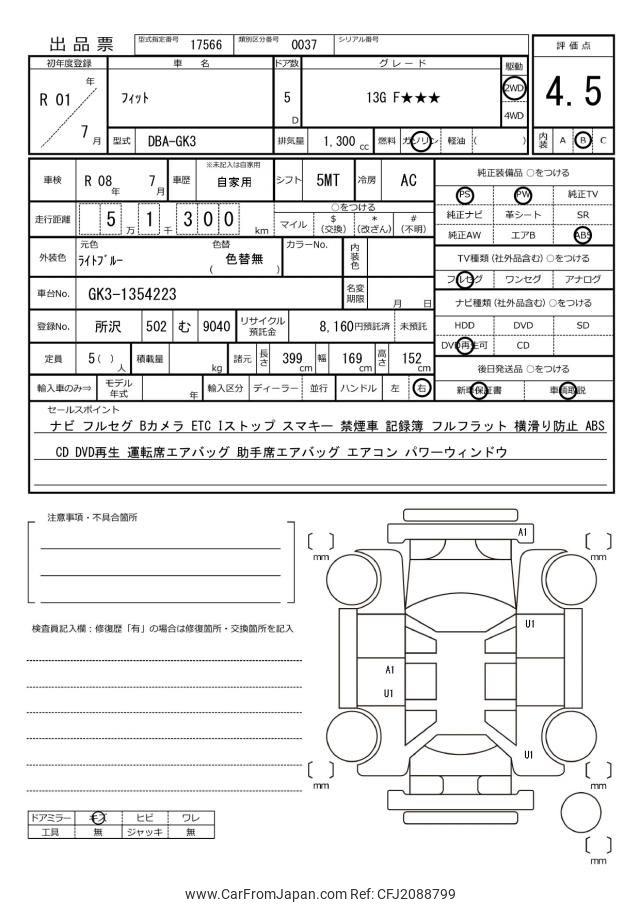 出品票 型式指定番号 17566 類別区分番号 0037 シリアル番号
評価点
4.5
内装 A B C
初年度登録 車名 ドア数 グレード 駆動
R 01 年 7 月
フィット 5 D 13G F★★★ 2WD 4WD
型式 DBA-GK3 排気量 1,300 cc 燃料 ガソリン 軽油 ( )
車検 R 08 年 7 月 車歴 ※未記入は自家用 自家用 シフト 5MT 冷房 AC
純正装備品 ○をつける
PS PW 純正TV
純正ナビ 革シート SR
純正AW エアB ABS
走行距離 5 万 1 千 3 0 0 km
○をつける
マイル $ (交換) * (改ざん) # (不明)
外装色 元色 ﾗｲﾄﾌﾞﾙｰ 色替 ( 色替無 ) カラーNo. 内装色
TV種類(社外品含む) ○をつける
フルセグ ワンセグ アナログ
車台No. GK3-1354223 名変期限 月 日
ナビ種類(社外品含む) ○をつける
HDD DVD SD
DVD再生可 CD
登録No. 所沢 502 む 9040 リサイクル預託金 8,160円預託済 未預託
定員 5 ( ) 人 積載量 kg 諸元 長さ 399 cm 幅 169 cm 高さ 152 cm
後日発送品 ○をつける
新車保証書 車輌取説
輸入車のみ⇒ モデル年式 年 輸入区分 ディーラー 並行 ハンドル 左 右
セールスポイント
ナビ フルセグ Bカメラ ETC Iストップ スマキー 禁煙車 記録簿 フルフラット 横滑り防止 ABS
CD DVD再生 運転席エアバッグ 助手席エアバッグ エアコン パワーウィンドウ
注意事項・不具合箇所
検査員記入欄：修復歴「有」の場合は修復箇所・交換箇所を記入
A1
mm
mm
U1
A1
U1
U1
mm
mm
mm
ドアミラー キズ ヒビ ワレ
工具 無 ジャッキ 無
www.CarFromJapan.com Ref: CFJ2088799